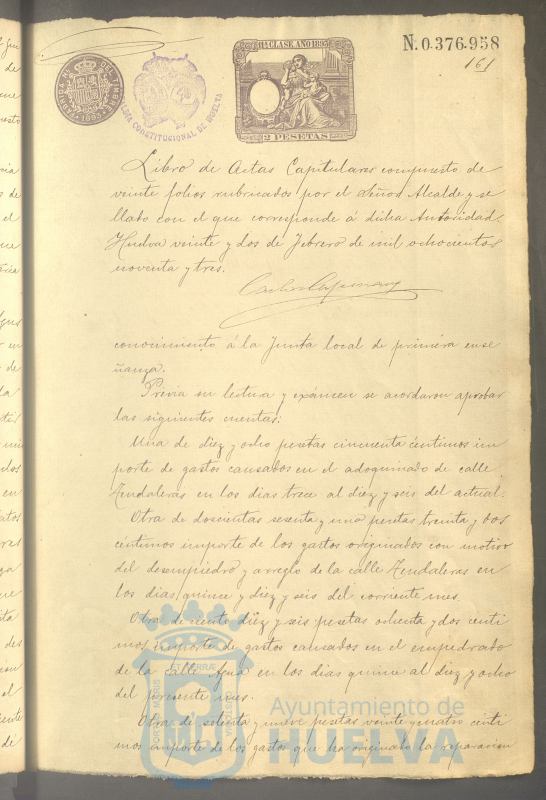 N. 0.376.958
161
11ª CLASE. AÑO 1893
2 PESETAS
CONSTITUCIONAL DE HUELVA
Libro de Actas Capitulares compuesto de
veinte folios rubricados por el Señor Alcalde y se
llado con el que corresponde á dicha Autoridad.
Huelva veinte y dos de Febrero de mil ochocientos
noventa y tres.
conocimiento á la Junta local de primera ense
ñanza.
Previa su lectura y exámen se acordaron aprobar
las siguientes cuentas:
Una de diez y ocho pesetas cincuenta céntimos im
porte de gastos causados en el adoquinado de calle
Tendaleras en los dias trece al diez y seis del actual.
Otra de doscientas sesenta y una pesetas treinta y dos
centimos importe de los gastos originados con motivo
del desempiedro y arreglo de la calle Tendaleras en
los dias quince y diez y seis del corriente mes.
Otra de ciento diez y seis pesetas ochenta y dos centi
mos importe de gastos causados en el empedrado
de la calle en los dias quince al diez y ocho
del presente mes.
Otra de setenta y nueve pesetas veinte y cuatro centi
mos importe de los gastos que ha originado la reparacion
Ayuntamiento de
HUELVA